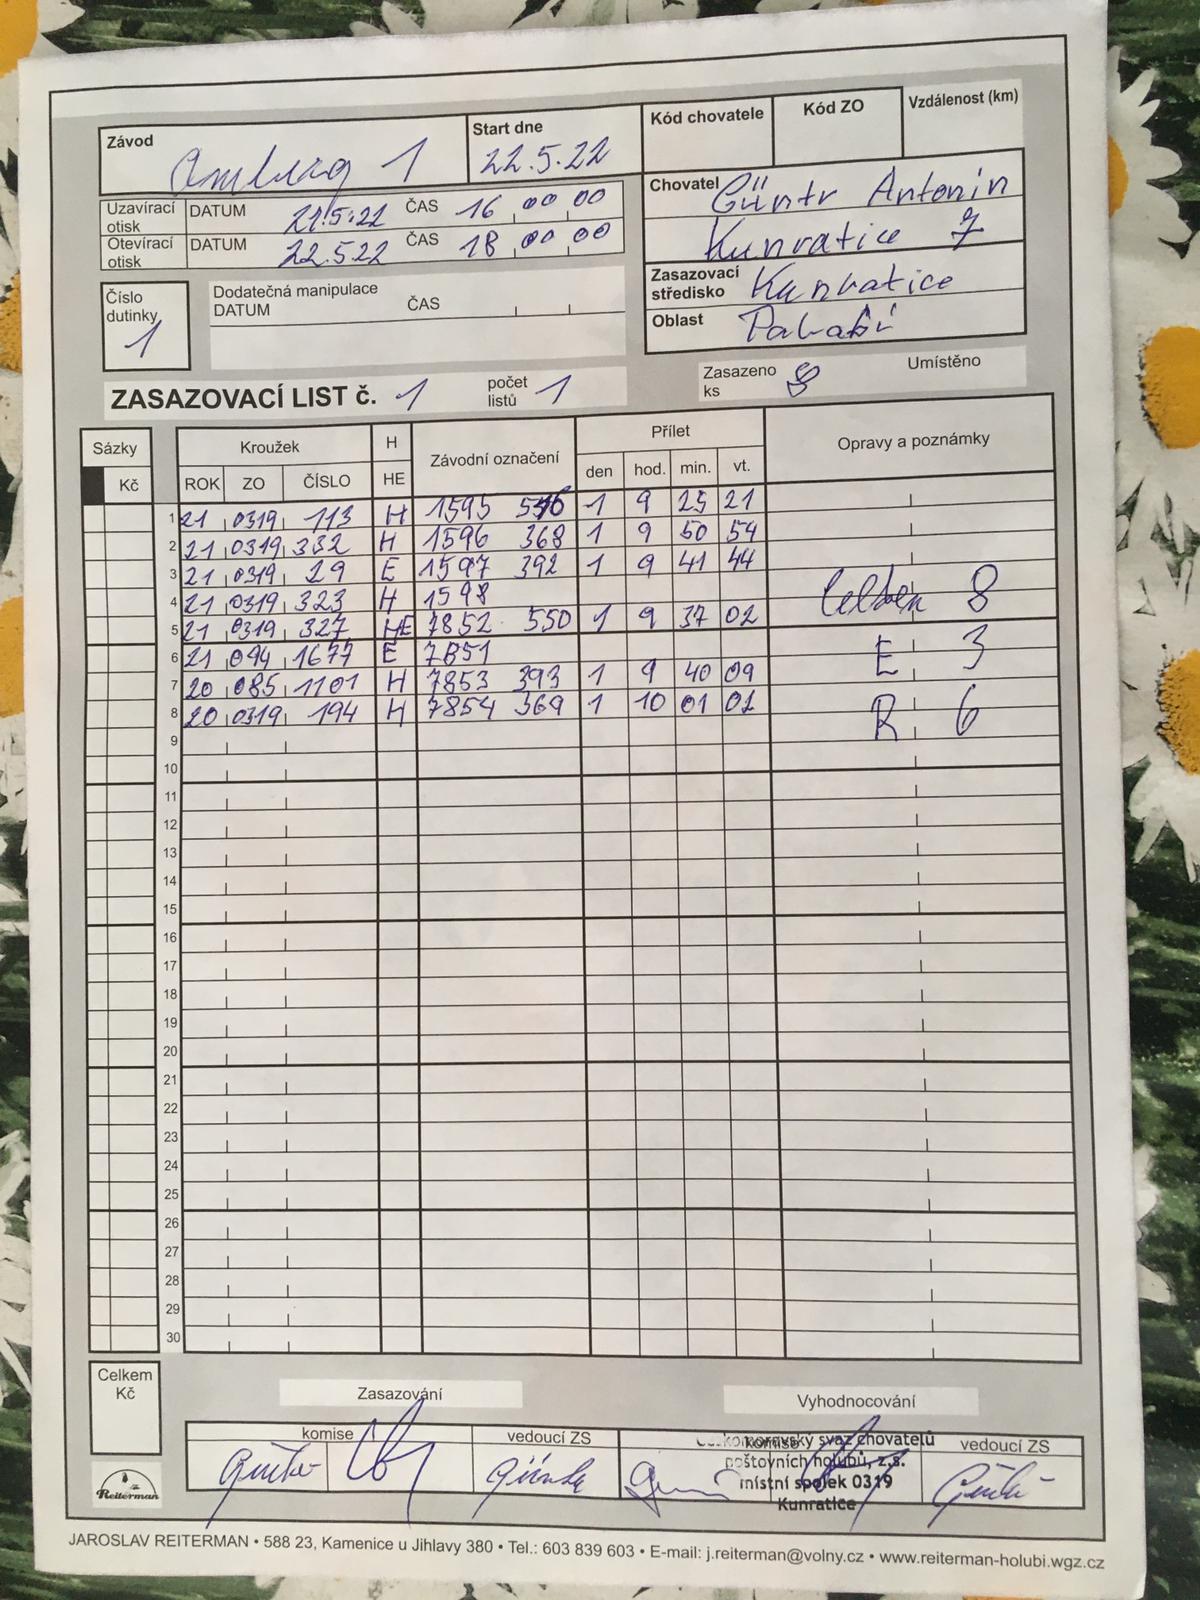 Závod
Start dne
Kód chovatele
Kód ZO
Vzdálenost (km)
1
22.5.22
Chovatel Güntr Antonín
Kunratice 7
Uzavírací otisk DATUM 21.5.22 ČAS 16 00 00
Otevírací otisk DATUM 22.5.22 ČAS 18 00 00
Zasazovací středisko Kunratice
Oblast
Číslo dutinky 1
Dodatečná manipulace
DATUM ČAS
ZASAZOVACÍ LIST č. 1 počet listů 1
Zasazeno ks 8
Umístěno
Sázky Kroužek H Závodní označení Přílet Opravy a poznámky
Kč ROK ZO ČÍSLO HE den hod. min. vt.
1 21 0319 113 H 1595 1 9 25 21
2 21 0319 332 H 1596 368 1 9 50 54
3 21 0319 29 E 1597 392 1 9 41 44
4 21 0319 323 H 1598 8
5 21 0319 327 HE 7852 550 1 9 37 02
6 21 094 1677 E 7851 E 3
7 20 085 1101 H 7853 393 1 9 40 09
8 20 0319 194 H 7854 369 1 10 01 01 R 6
9
10
11
12
13
14
15
16
17
18
19
20
21
22
23
24
25
26
27
28
29
30
Celkem Kč
Zasazování
Vyhodnocování
komise
vedoucí ZS
komise
vedoucí ZS
svaz chovatelů
poštovních holubů, z.s.
místní spolek 0319
Kunratice
Reiterman
JAROSLAV REITERMAN • 588 23, Kamenice u Jihlavy 380 • Tel.: 603 839 603 • E-mail: j.reiterman@volny.cz • www.reiterman-holubi.wgz.cz